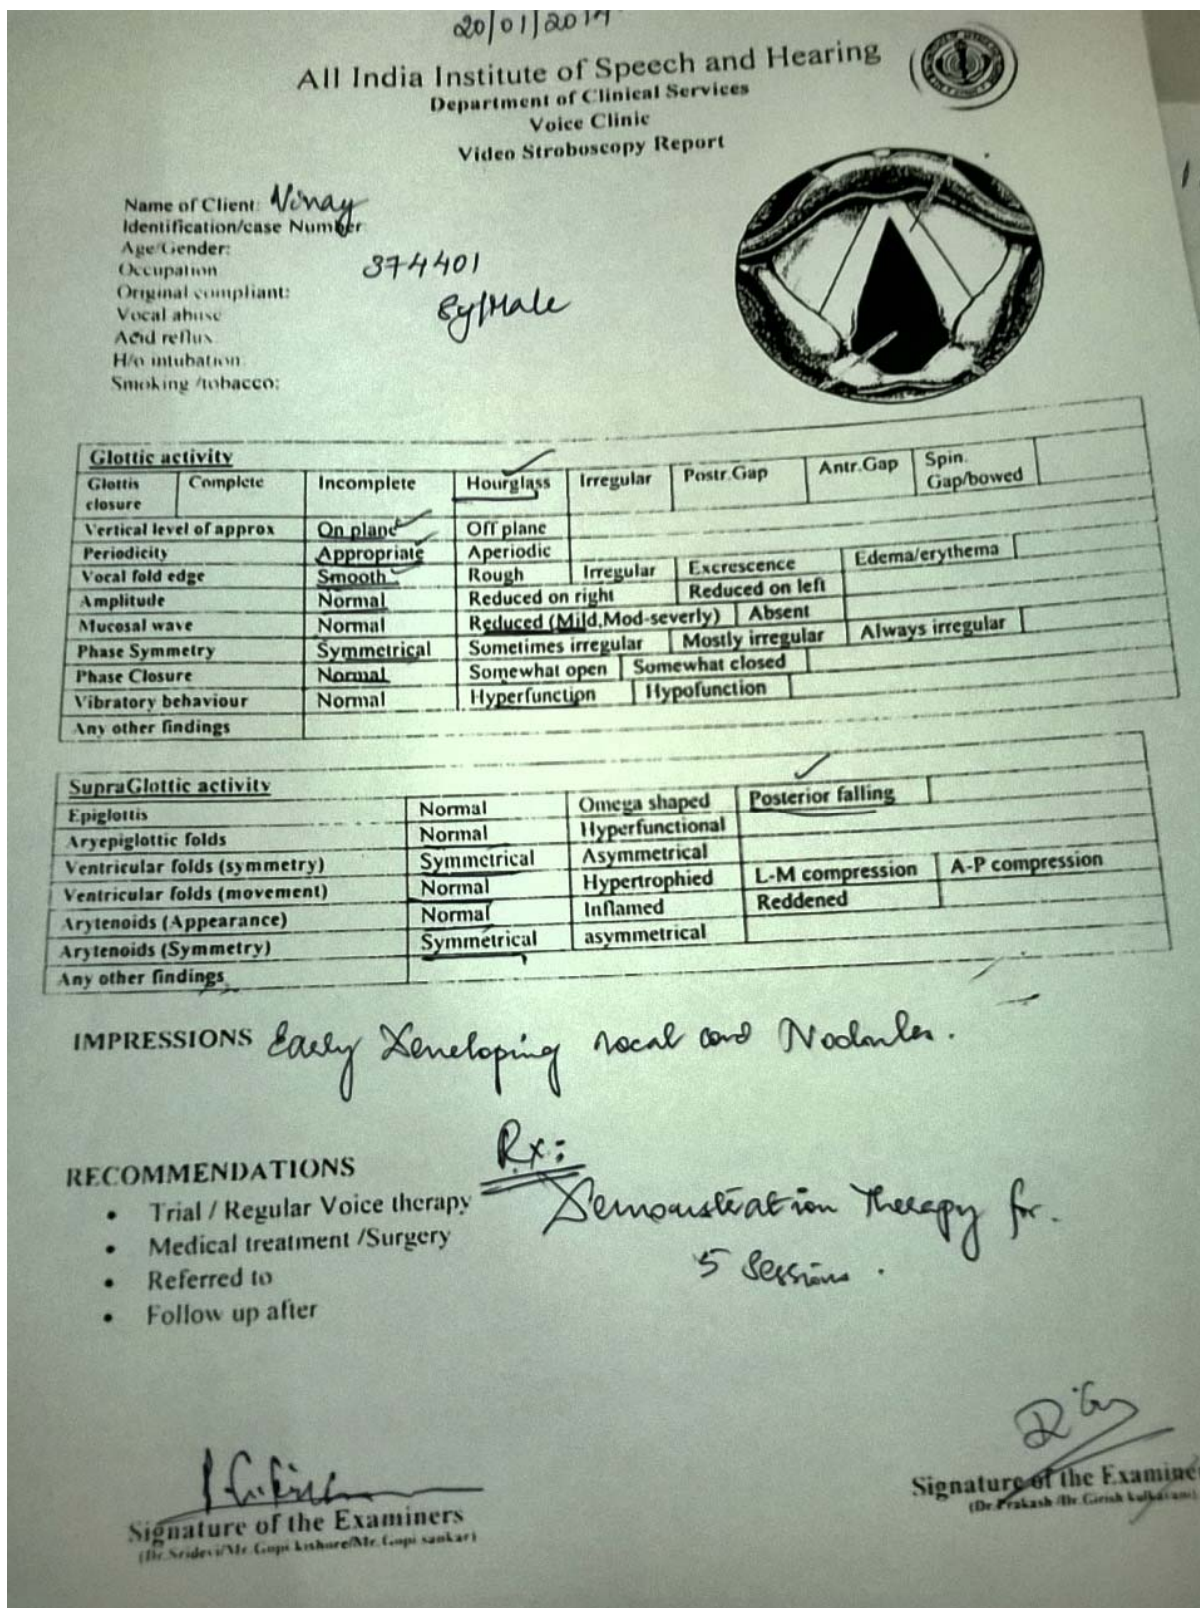 20/01/2014
All India Institute of Speech and Hearing
Department of Clinical Services
Voice Clinic
Video Stroboscopy Report
Name of Client: Vinay
Identification/case Number
Age/Gender:
Occupation 374401
Original compliant:
Vocal abuse 8y/Male
Acid reflux
H/o intubation:
Smoking /tobacco:
Glottic activity
Glottis closure Complete Incomplete Hourglass Irregular Postr.Gap Antr.Gap Spin. Gap/bowed
Vertical level of approx On plane Off plane
Periodicity Appropriate Aperiodic
Vocal fold edge Smooth Rough Irregular Excrescence Edema/erythema
Amplitude Normal Reduced on right Reduced on left
Mucosal wave Normal Reduced (Mild,Mod-severly) Absent
Phase Symmetry Symmetrical Sometimes irregular Mostly irregular Always irregular
Phase Closure Normal Somewhat open Somewhat closed
Vibratory behaviour Normal Hyperfunction Hypofunction
Any other findings
SupraGlottic activity
Epiglottis Normal Omega shaped Posterior falling
Aryepiglottic folds Normal Hyperfunctional
Ventricular folds (symmetry) Symmetrical Asymmetrical
Ventricular folds (movement) Normal Hypertrophied L-M compression A-P compression
Arytenoids (Appearance) Normal Inflamed Reddened
Arytenoids (Symmetry) Symmetrical asymmetrical
Any other findings
IMPRESSIONS Early Developing vocal cord Nodules.
Rx:
RECOMMENDATIONS
• Trial / Regular Voice therapy Demonstration Therapy for.
• Medical treatment /Surgery
• Referred to 5 Sessions.
• Follow up after
Signature of the Examiners
(Dr.Sridevi/Mr.Gopi kishore/Mr.Gopi sankar)
Signature of the Examine
(Dr.Prakash /Dr.Girish kulkarani)